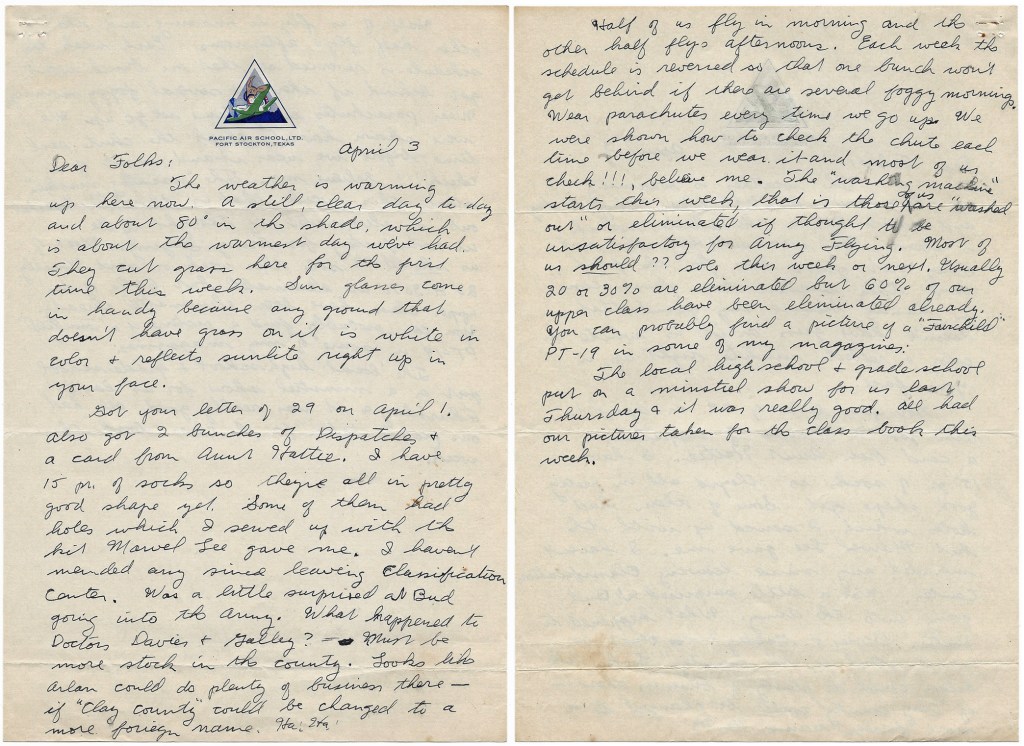 PACIFIC AIR SCHOOL, LTD.
FORT STOCKTON, TEXAS
April 3
Dear Folks:
The weather is warming
up here now. A still, clear day to-day
and about 80° in the shade, which
is about the warmest day we've had.
They cut grass here for the first
time this week. Sun glasses come
in handy because any ground that
doesn't have grass on it is white in
color & reflects sunlite right up in
your face.
Got your letter of 29 on April 1.
Also got 2 bunches of Dispatches &
a card from Aunt Hattie. I have
15 pr. of socks so they're all in pretty
good shape yet. Some of them had
holes which I sewed up with the
kit Marvel Lee gave me. I haven't
mended any since leaving Classification
Center. Was a little surprised at Bud
going into the Army. What happened to
Doctors Davies & Galley? — Must be
more stock in the county. Looks like
Arlan could do plenty of business there —
if "Clay county" could be changed to a
more foriegn name. Ha! Ha!
Half of us fly in morning and the
other half flys afternoons. Each week the
schedule is reversed so that one bunch won't
get behind if there are several foggy mornings.
Wear parachutes every time we go up. We
were shown how to check the chute each
time before we wear it and most of us
check!!!, believe me. The "washing machine"
starts this week, that is those of us are "washed
out" or eliminated if thought to be
unsatisfactory for Army Flying. Most of
us should ?? solo this week or next. Usually
20 or 30% are eliminated but 60% of our
upper class have been eliminated already.
You can probably find a picture of a "Fairchild"
PT-19 in some of my magazines.
The local high school & grade school
put on a minstrel show for us last
Thursday & it was really good. All had
our pictures taken for the class book this
week.